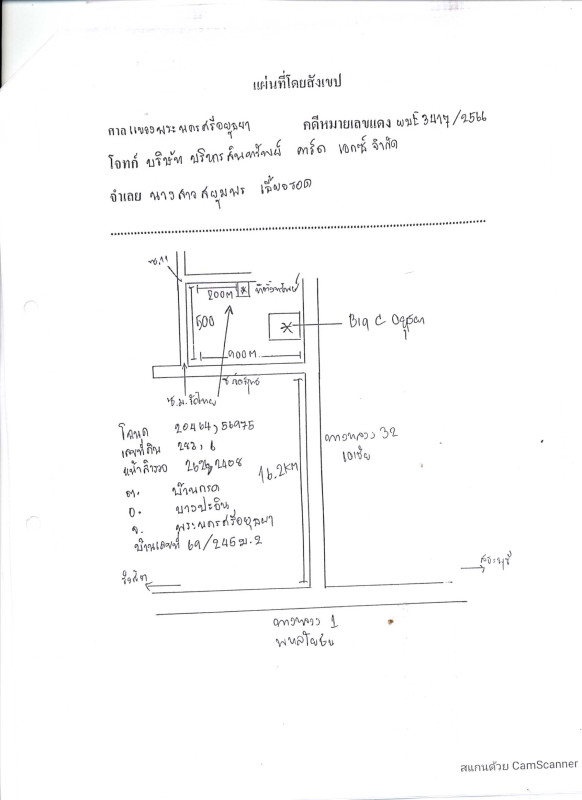 แผ่นที่โดยสังเขป
ศาลแขวงพระนครศรีอยุธยา คดีหมายเลขแดง ผบE3417/2566
โจทก์ บริษัท บริหารสินทรัพย์ คาร์ด เอกซ์ จำกัด
จำเลย นางสาว
ซ.11
200M
ที่ตั้งทรัพย์
500
Big C อยุธยา
900M
โฉนด 20464, 56975
เลขที่ดิน 243, 6
หน้าสำรวจ 2408
16.2KM
ทางหลวง 32
เอเชีย
ต. บ้านกรด
อ. บางปะอิน
จ. พระนครศรีอยุธยา
บ้านเลขที่ 69/245 ม.2
รังสิต
สระบุรี
ทางหลวง 1
พหลโยธิน
สแกนด้วย CamScanner